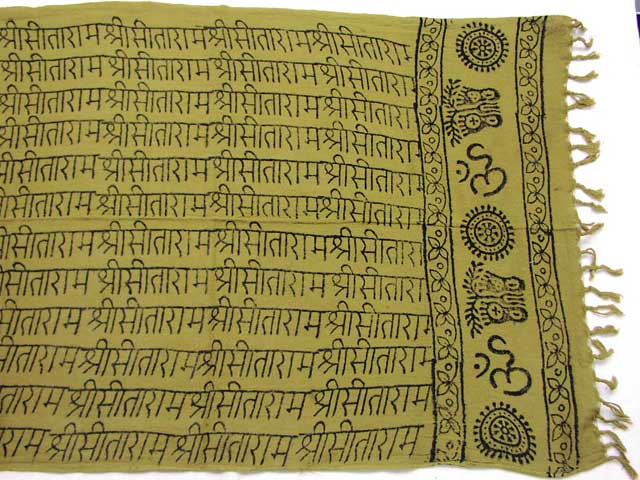 श्रीसीताराम श्रीसीताराम श्रीसीताराम श्रीसीताराम
श्रीसीताराम श्रीसीताराम श्रीसीताराम श्रीसीताराम
श्रीसीताराम श्रीसीताराम श्रीसीताराम श्रीसीताराम
श्रीसीताराम श्रीसीताराम श्रीसीताराम श्रीसीताराम
श्रीसीताराम श्रीसीताराम श्रीसीताराम श्रीसीताराम
श्रीसीताराम श्रीसीताराम श्रीसीताराम श्रीसीताराम
श्रीसीताराम श्रीसीताराम श्रीसीताराम श्रीसीताराम
श्रीसीताराम श्रीसीताराम श्रीसीताराम श्रीसीताराम
ताराम श्रीसीताराम श्रीसीताराम श्रीसीताराम
ीताराम श्रीसीताराम श्रीसीताराम श्रीसीताराम
ताराम श्रीसीताराम श्रीसीताराम श्रीसीताराम
राम श्रीसीताराम श्रीसीताराम श्रीसीताराम
ॐ
ॐ